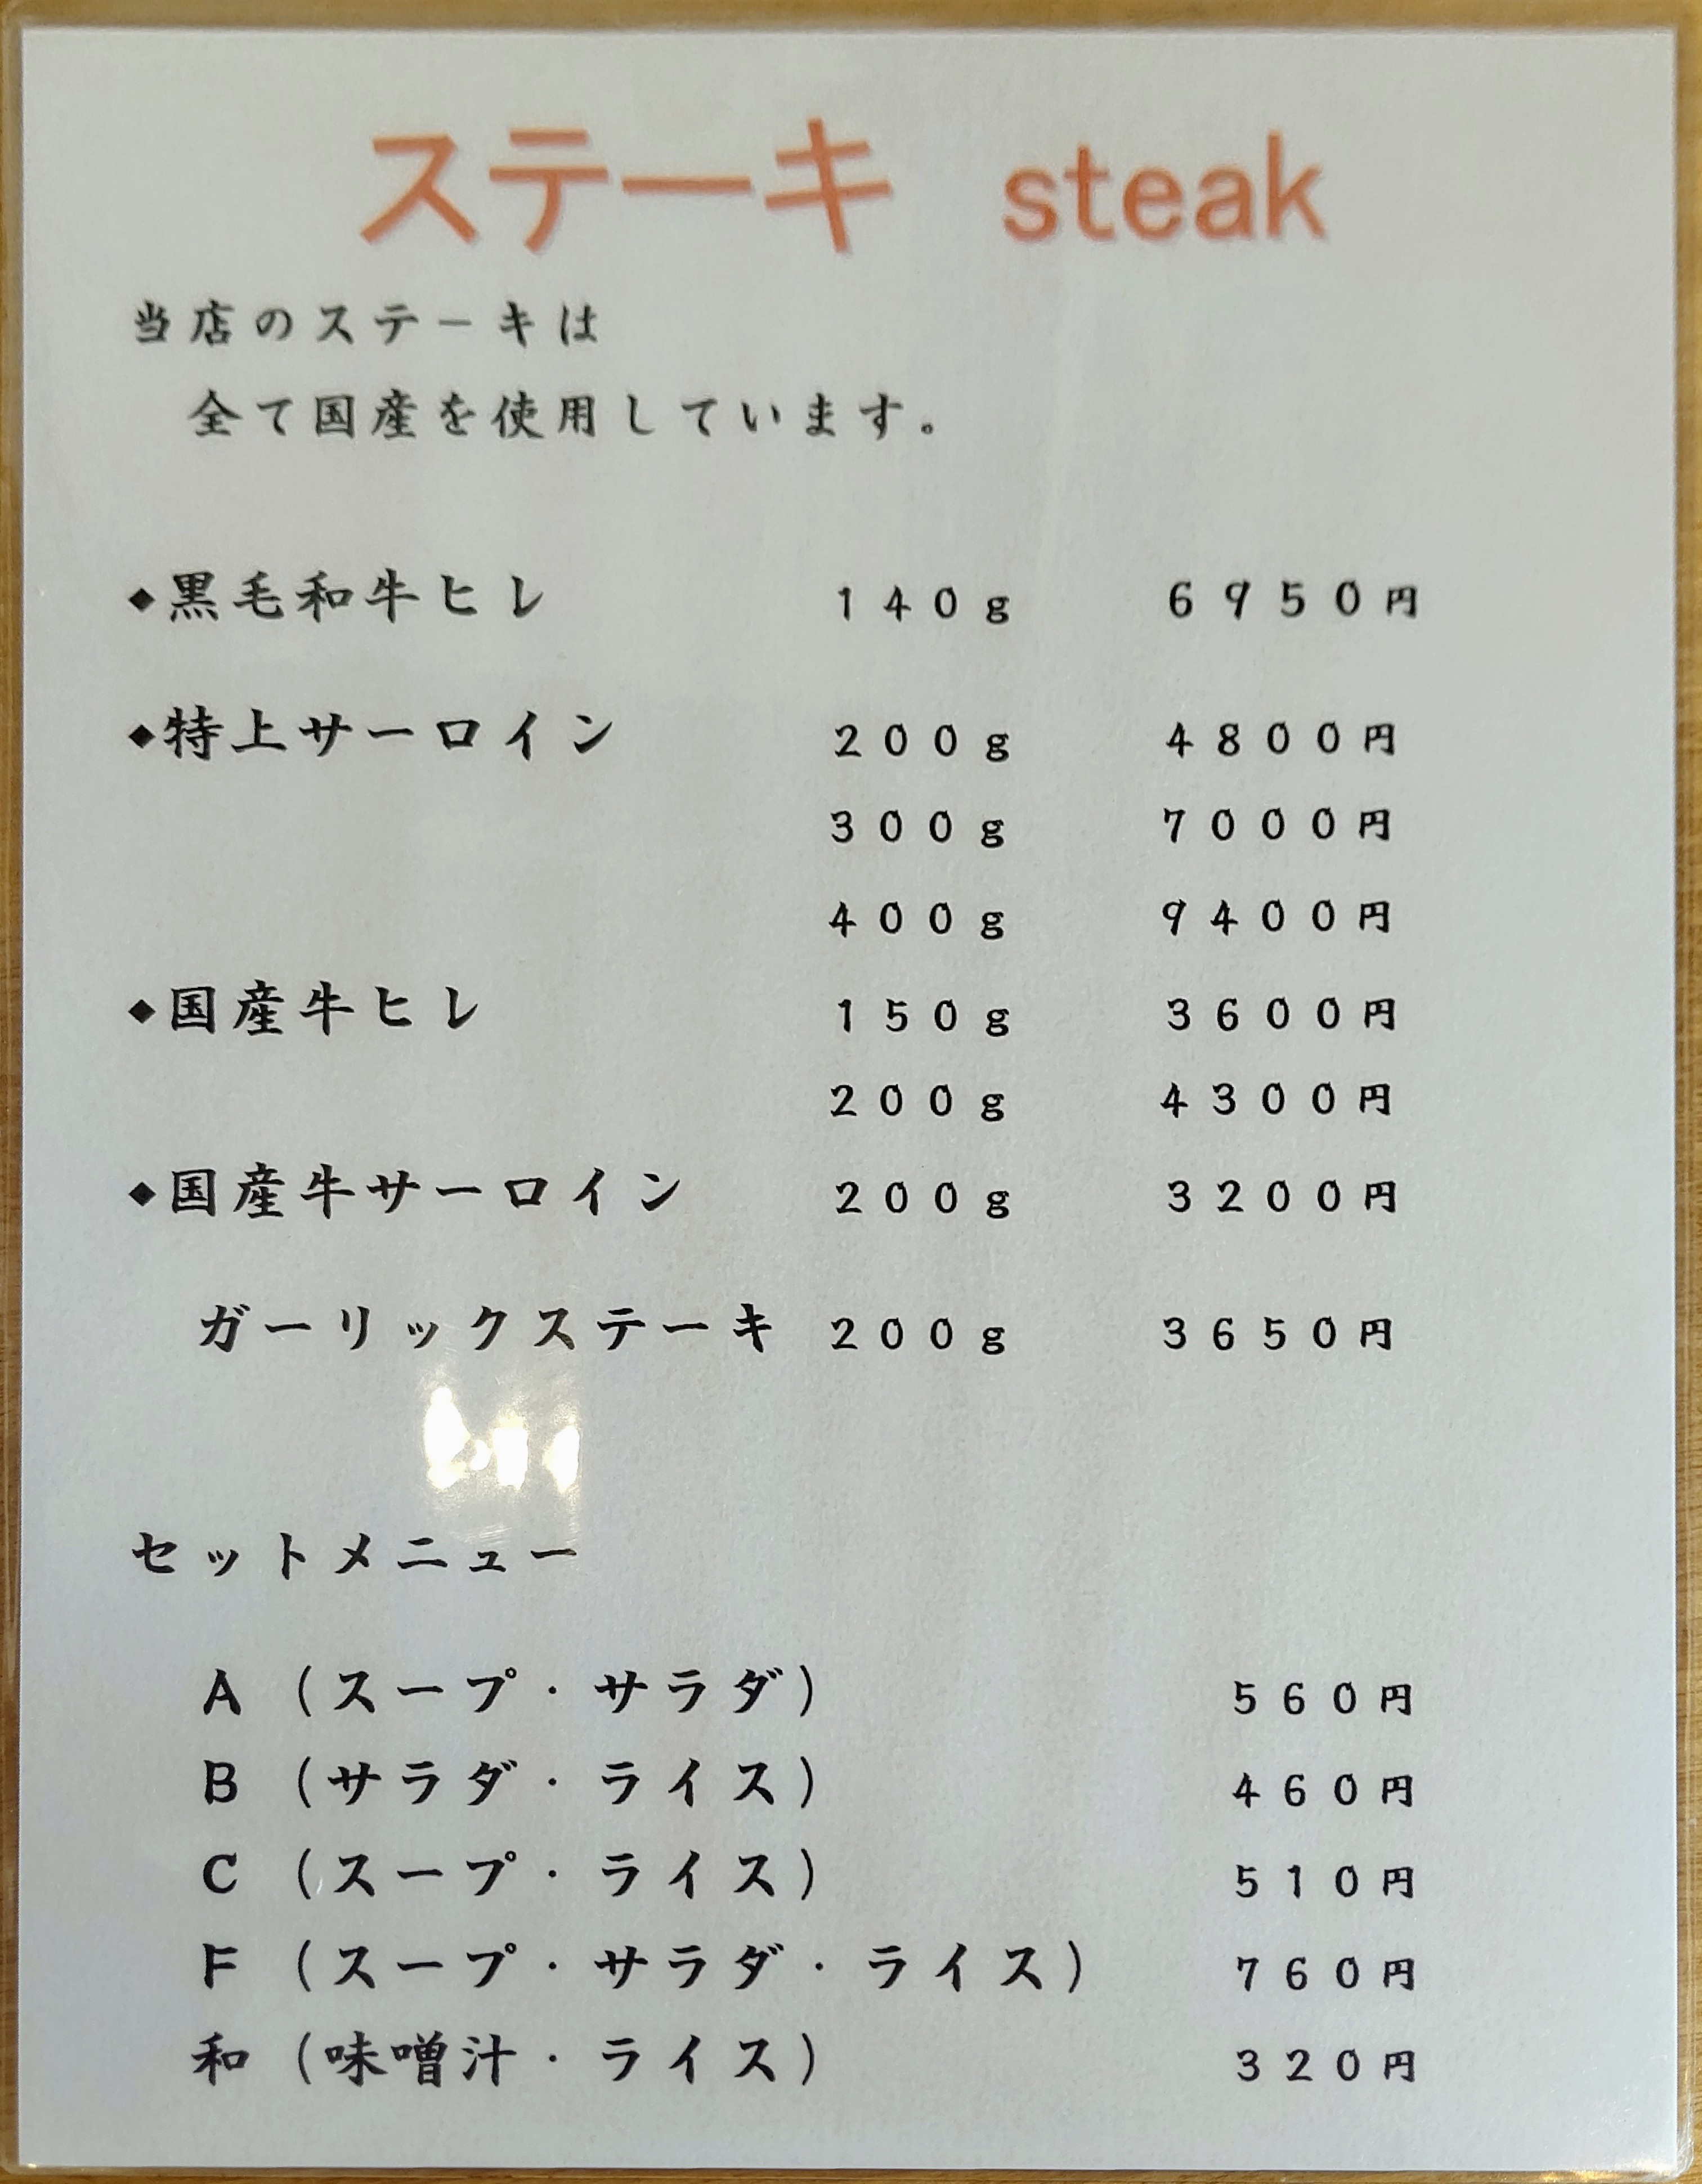 ステーキ steak
当店のステーキは
全て国産を使用しています。
◆黒毛和牛ヒレ 140g 6950円
◆特上サーロイン 200g 4800円
300g 7000円
400g 9400円
◆国産牛ヒレ 150g 3600円
200g 4300円
◆国産牛サーロイン 200g 3200円
ガーリックステーキ 200g 3650円
セットメニュー
A (スープ・サラダ) 560円
B (サラダ・ライス) 460円
C (スープ・ライス) 510円
F (スープ・サラダ・ライス) 760円
和 (味噌汁・ライス) 320円